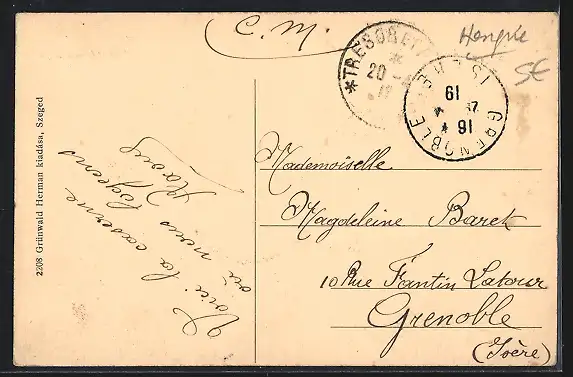 C. M.
Hongrie
5€
*TRESOR ET
*
20
GRENOBLE
ISERE
19
*
*
16
Voici la caserne
où nous logeons
2208 Grünwald Herman kiadása, Szeged
Mademoiselle
Magdeleine Baret
10 Rue Fantin Latour
Grenoble
(Isère)